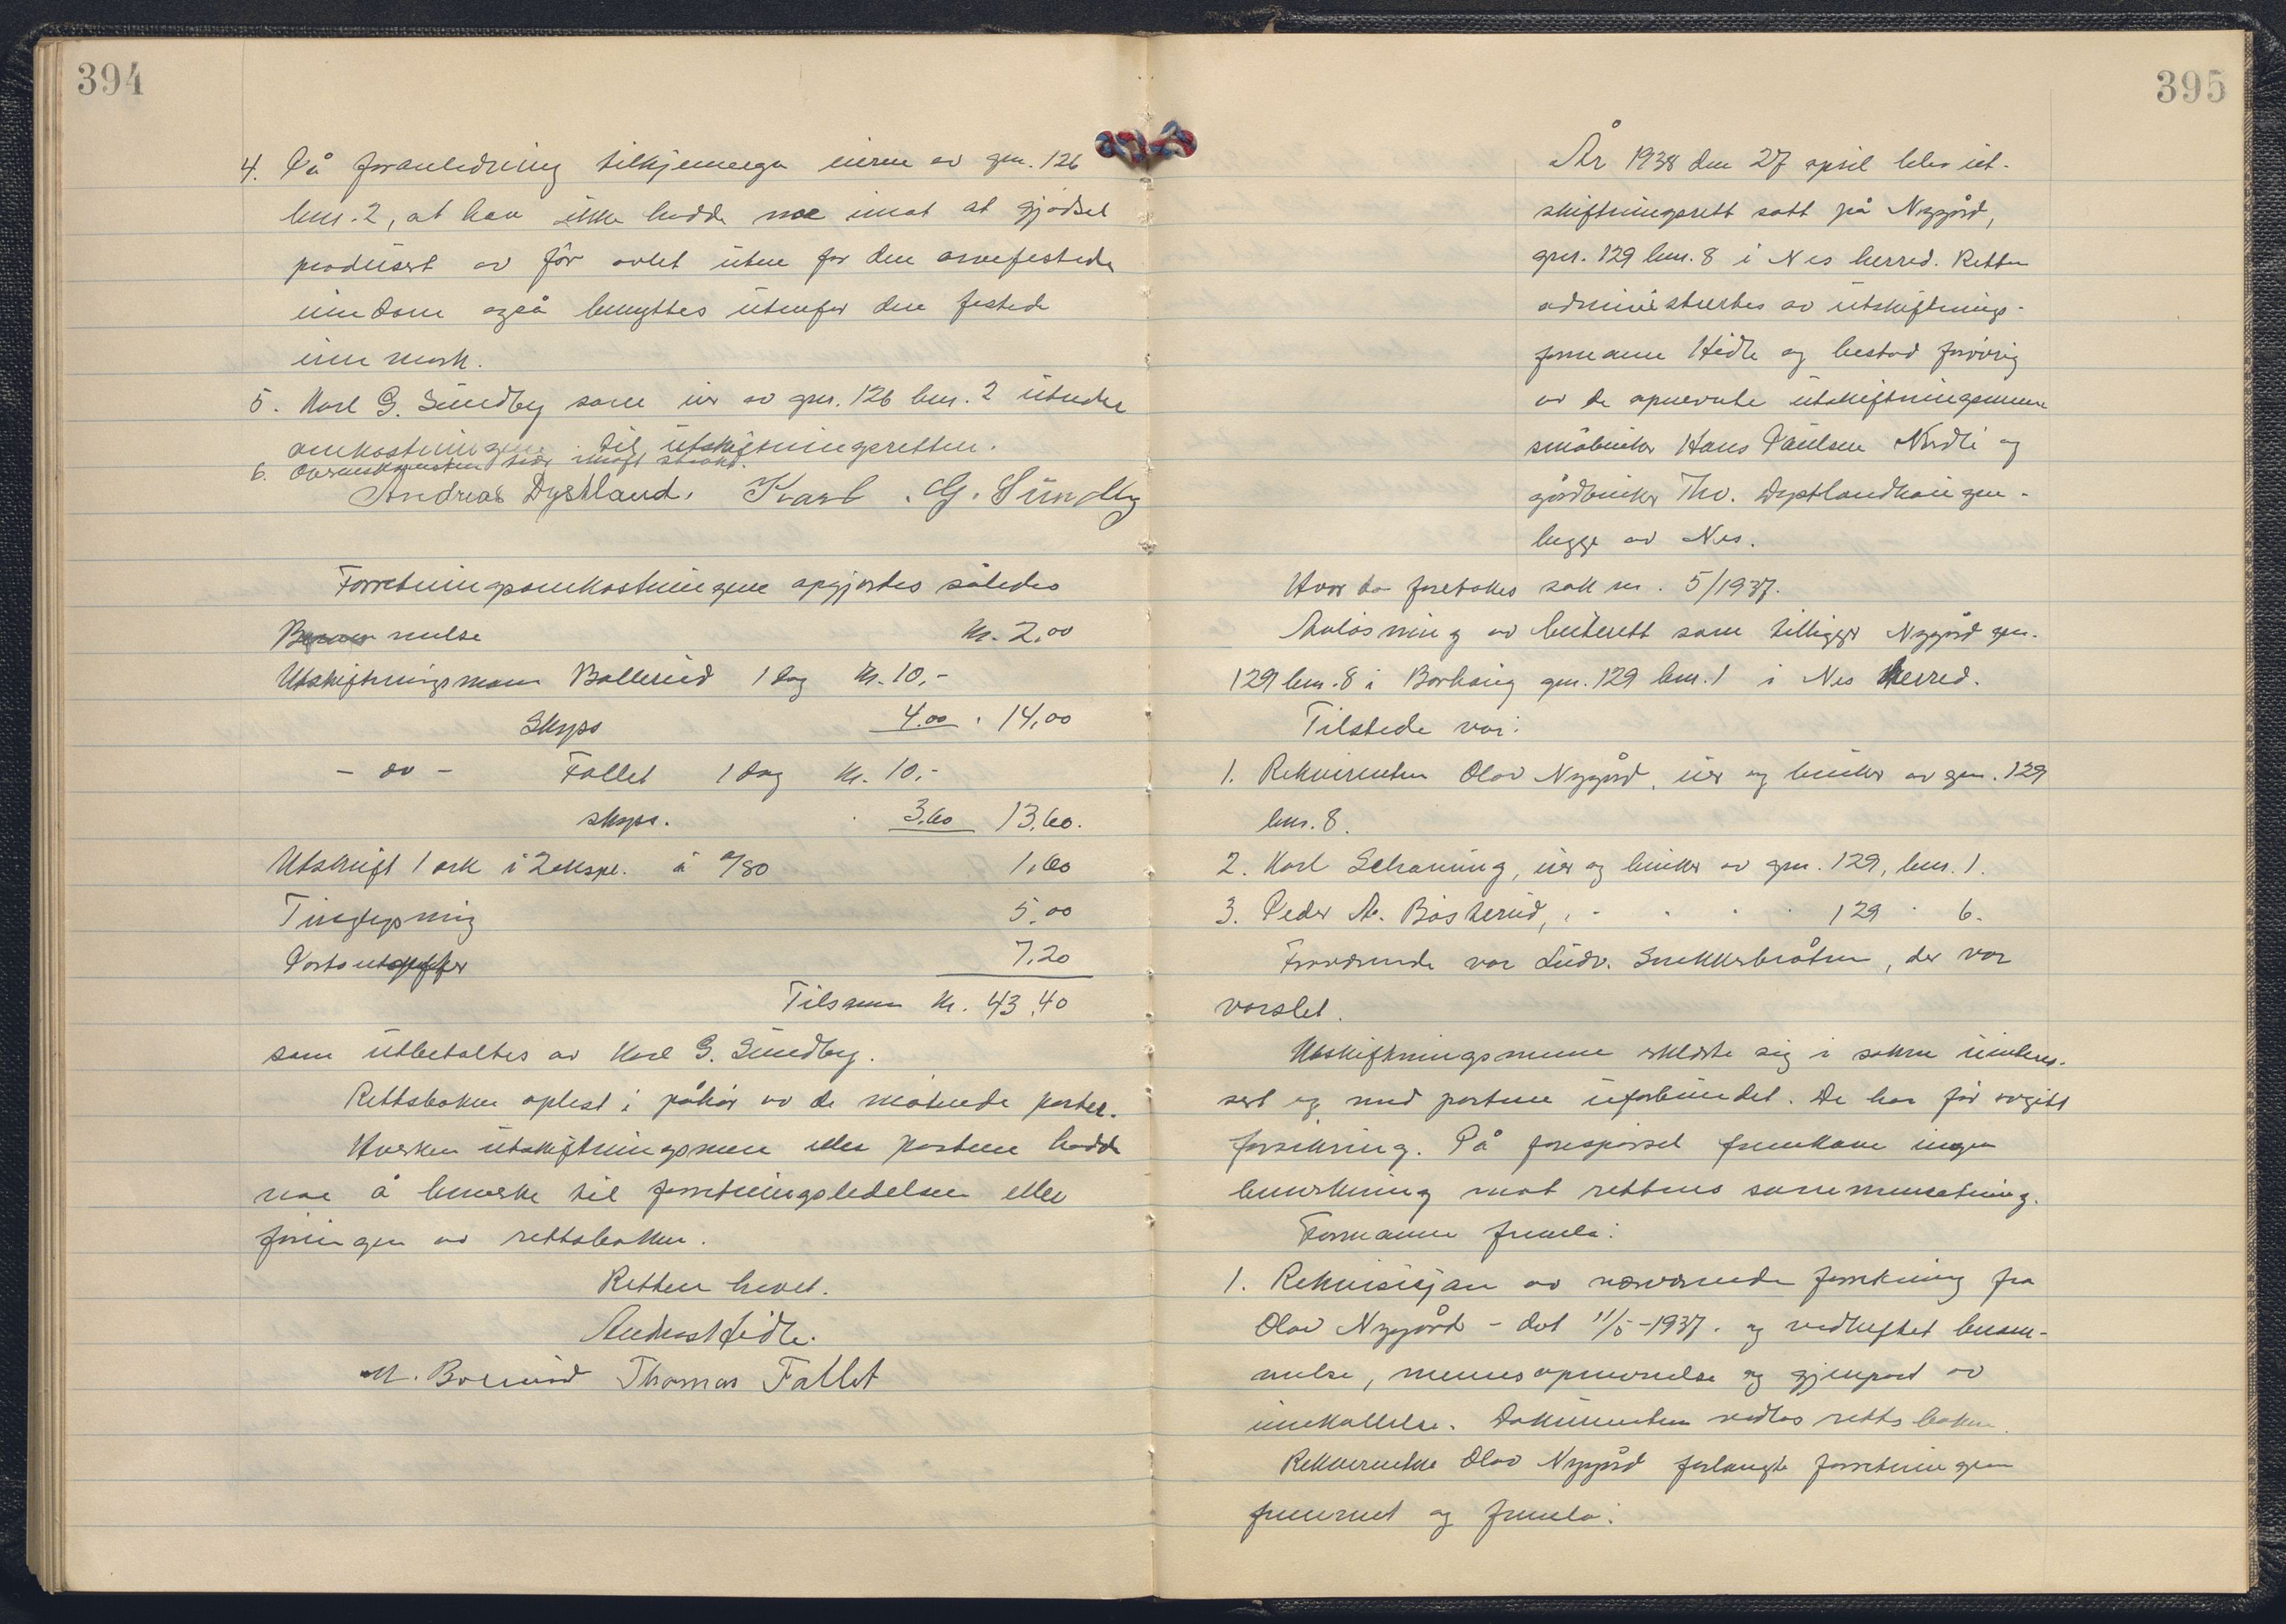 394
4. På foranledning tilkjennega eieren av gnr. 126
bnr. 2, at han ikke hadde noe imot at gjødsel
produsert av fôr avlet uten for den arvefestede
eiendom også benyttes utenfor den festede
inn mark.
5. Karl G. Sundby som eier av gnr. 126 bnr. 2 utreder
omkostningene til utskiftningsretten.
6. Overenskomsten trær i kraft straks.
Andreas Dystland. Karl . G. Sundby
Forretningsomkostningene opgjordes således
nulse kr. 2.00
Utskiftningsmann Bollerud 1 dag kr. 10,-
Skyss 4.00 . 14,00
- do - Fallet 1 dag kr. 10,-
skyss. 3,60 13,60.
Utskrift 1 ark i 2 ekspl. à 0/80 1,60
Tinglysning 5,00
Portoutgifter 7,20
Tilsammen kr. 43,40
som utbetaltes av Karl G. Sundby.
Rettsboken oplest i påhør av de møtende parter.
Hverken utskiftningsmenn eller partene hadde
noe å bemerke til forretningsledelsen eller
føringen av rettsboken.
Retten hevet.
Andreas Hidle.
M. Bollerud Thomas Fallet
395
År 1938 den 27 april blev ut-
skiftningsrett satt på Nygård,
gnr. 129 bnr. 8 i Nes herred. Retten
administrertes av utskiftnings-
formann Hidle og bestod forøvrig
av de opnevnte utskiftningsmenn
småbruker Hans Paulsen Nordli og
gårdbruker Thv. Dystlandhaugen -
begge av Nes.
Hvor da foretokes sak nr. 5/1937.
Avløsning av beiterett som tilligger Nygård gnr.
129 bnr. 8 i Borhaug gnr. 129 bnr. 1 i Nes herred.
Tilstede var:
1. Rekvirenten Olav Nygård, eier og bruker av gnr. 129
bnr. 8.
2. Karl Schaning, eier og bruker av gnr. 129, bnr. 1.
3. Peder A. Bøsterud, . - . . . 129 . 6.
Fraværende var Ludv. Snekkerbråten, der var
varslet.
Utskiftningsmennene erklærte sig i saken uinteres-
sert og med partene uforbundet. De har før avgitt
forsikring. På forespørsel fremkom ingen
bemerkning mot rettens sammensetning.
Formannen fremla:
1. Rekvisisjon av nærværende forretning fra
Olav Nygård - dat 11/5-1937. og vedheftet beram-
melse, mennesopnevnelse og gjenpart av
innkallelse. Dokumentene vedlas rettsboken.
Rekvirenten Olav Nygård forlangte forretningen
fremmet og fremla: